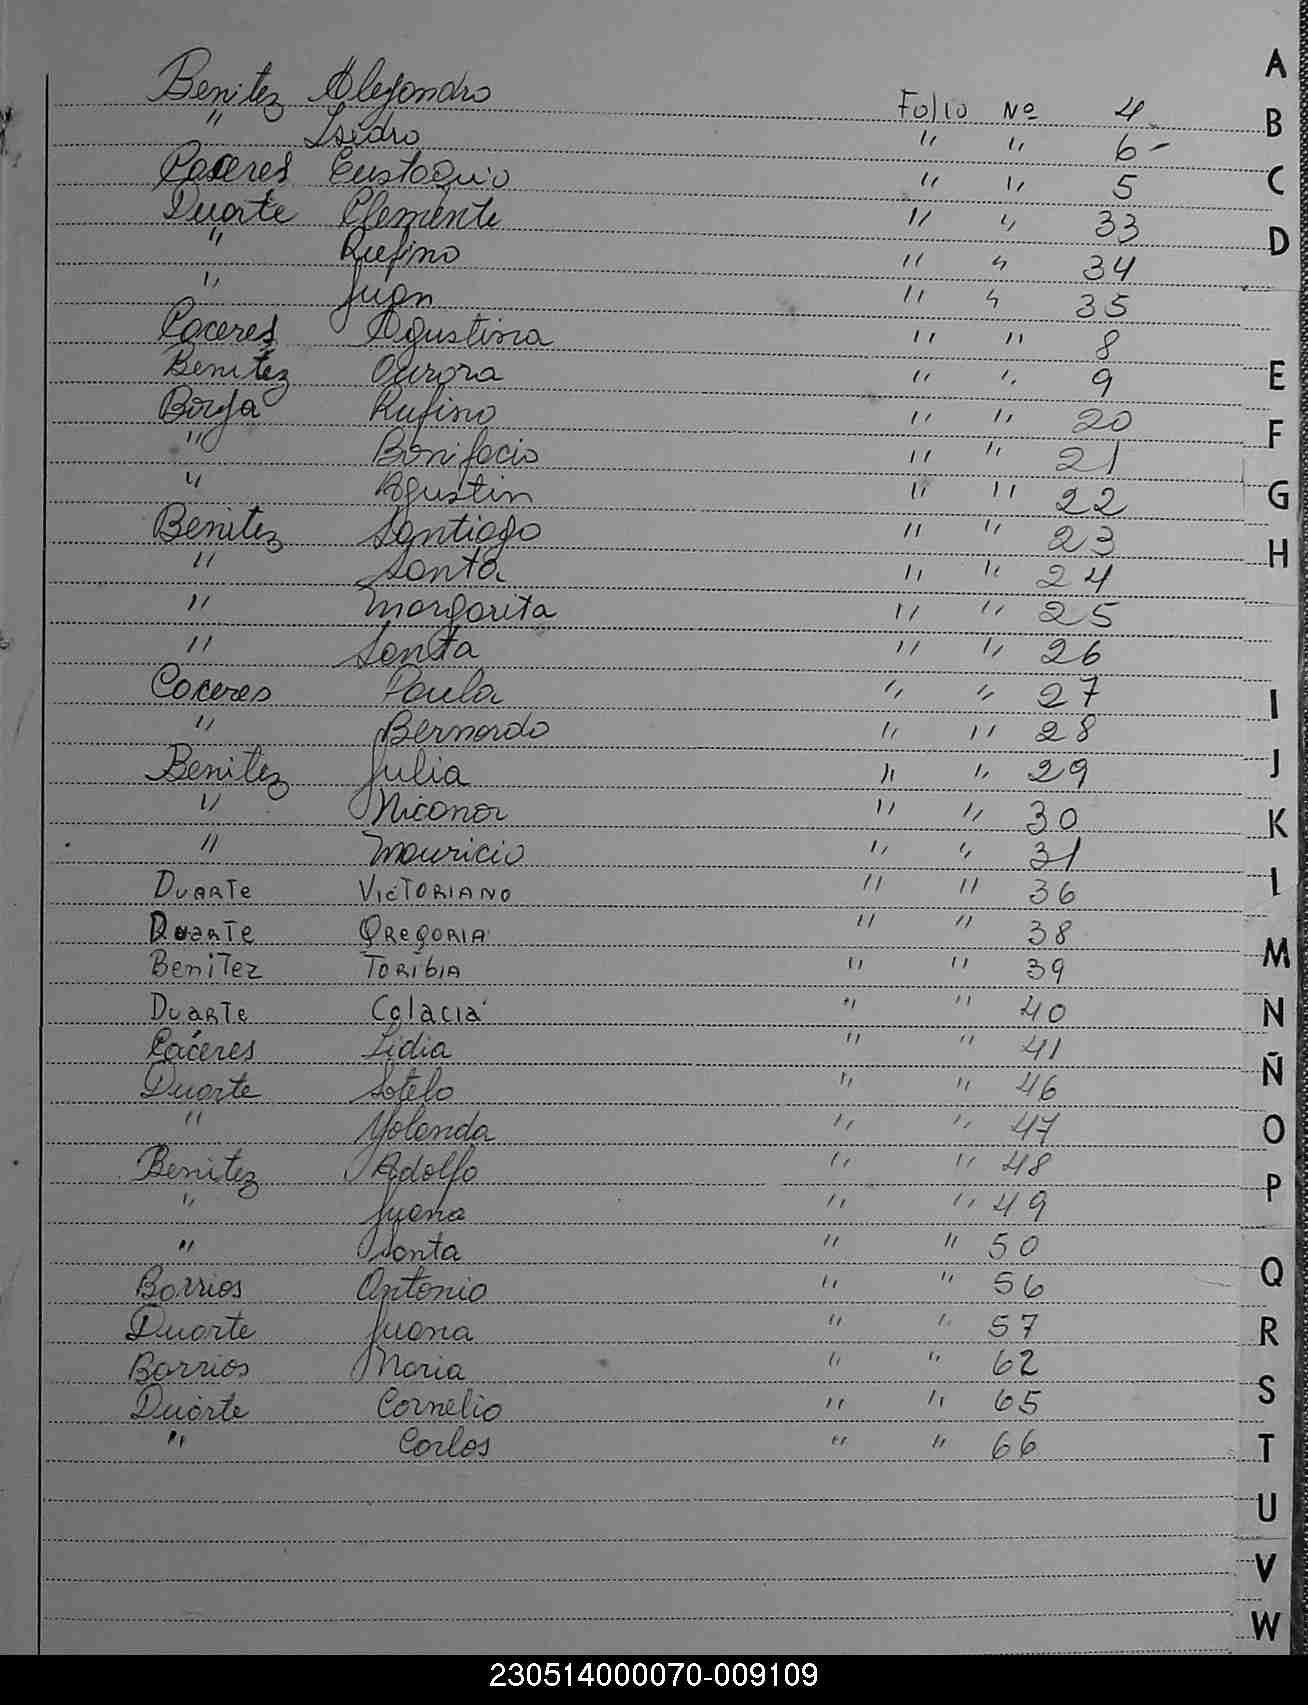 Benitez Alejandro Folio Nº 4
" Isidro " " 6-
Caceres Eustaquio " " 5
Duarte Clemente " " 33
" Rufino " " 34
" Juan " " 35
Caceres Agustina " " 8
Benitez Aurora " " 9
Borja Rufino " " 20
" Bonifacio " " 21
" Agustin " " 22
Benitez Santiago " " 23
" Santa " " 24
" Margarita " " 25
" Santa " " 26
Caceres Paula " " 27
" Bernardo " " 28
Benitez Julia " " 29
" Nicanor " " 30
" Mauricio " " 31
Duarte Victoriano " " 36
Duarte Gregoria " " 38
Benitez Toribia " " 39
Duarte Colacia " " 40
Cáceres Lidia " " 41
Duarte Sotelo " " 46
" Yolanda " " 47
Benitez Adolfo " " 48
" Juana " " 49
" Santa " " 50
Barrios Antonio " " 56
Duarte Juana " " 57
Barrios Maria " " 62
Duarte Cornelio " " 65
" Carlos " " 66
A
B
C
D
E
F
G
H
I
J
K
L
M
N
Ñ
O
P
Q
R
S
T
U
V
W
230514000070-009109